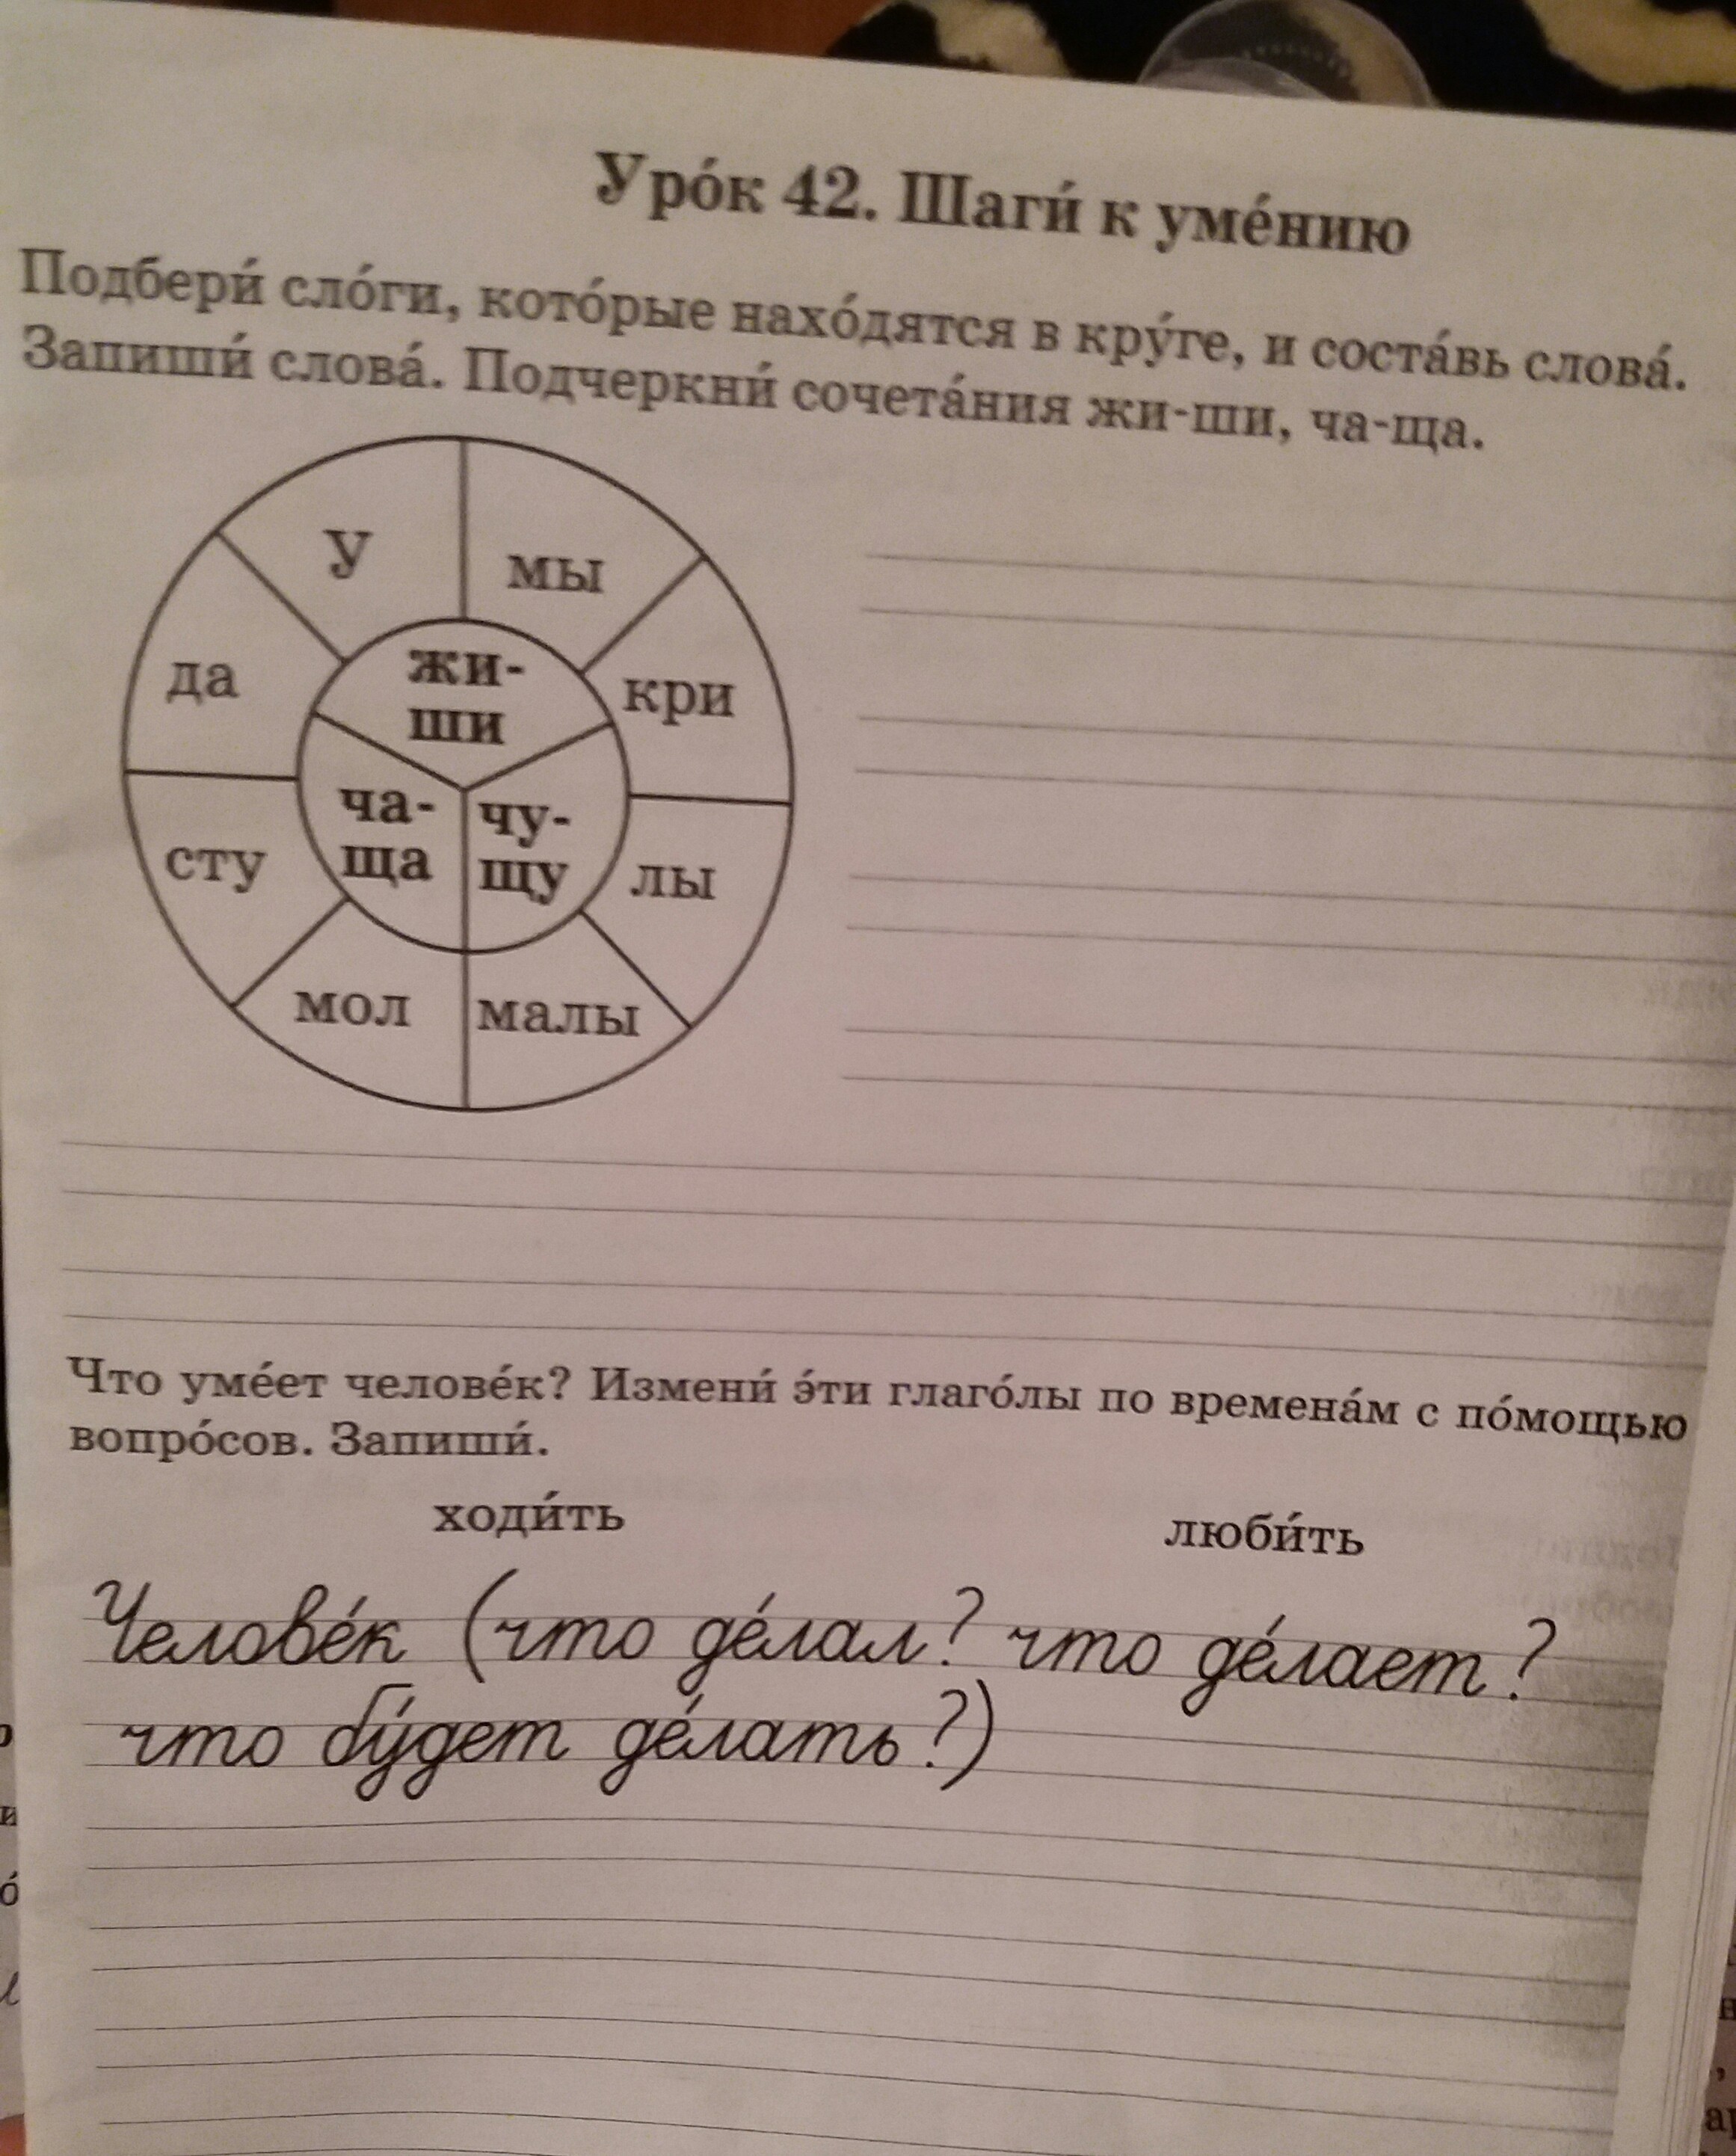 Уро́к 42. Шаги́ к уме́нию
Подбери́ сло́ги, кото́рые нахо́дятся в кру́ге, и соста́вь слова́.
Запиши́ слова́. Подчеркни́ сочета́ния жи-ши, ча-ща.
у
мы
да
жи-
ши
кри
ча-
ща
чу-
щу
сту
лы
мол
малы
Что уме́ет челове́к? Измени́ э́ти глаго́лы по времена́м с по́мощью
вопро́сов. Запиши́.
ходи́ть
люби́ть
Челове́к (что де́лал? что де́лает?
что бу́дет де́лать?)